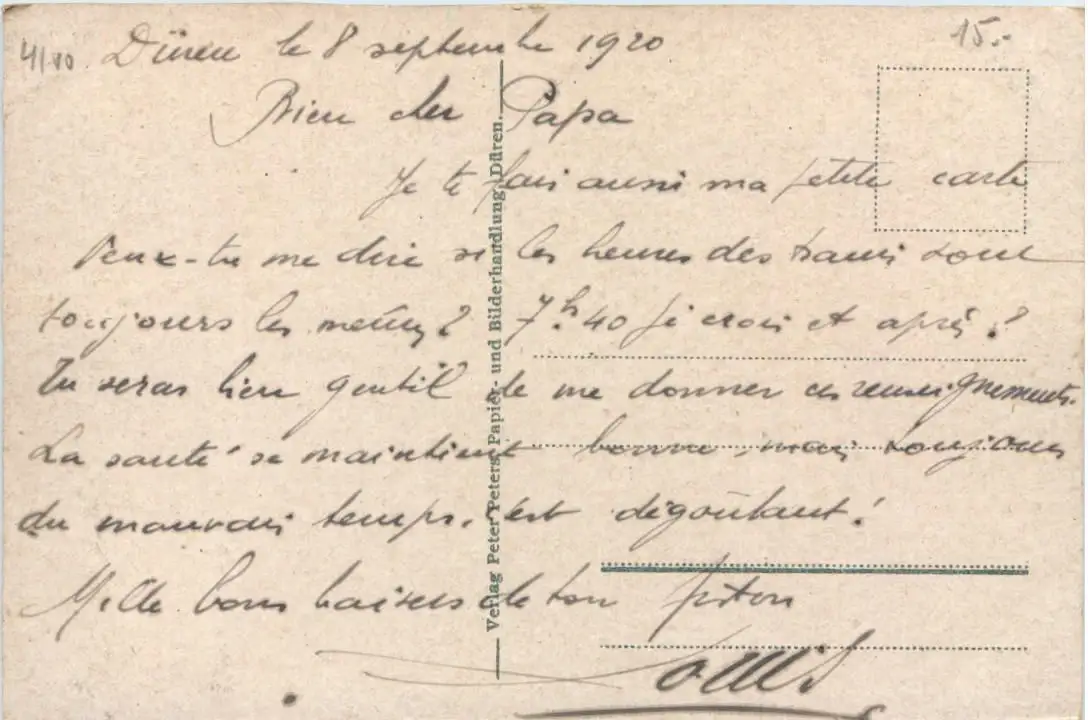 4180
15.-
Düren le 8 septembre 1920
Bien cher Papa
Je te fais aussi ma petite carte
Peux-tu me dire si les heures des trains sont
toujours les mêmes? 7h.40 je crois et après?
Tu seras bien gentil de me donner ces renseignements.
La santé se maintient bonne, mais toujours
du mauvais temps, c'est dégoûtant!
Mille bons baisers de ton fiston
Louis
Verlag Peter Peters, Papier- und Bilderhandlung, Düren.